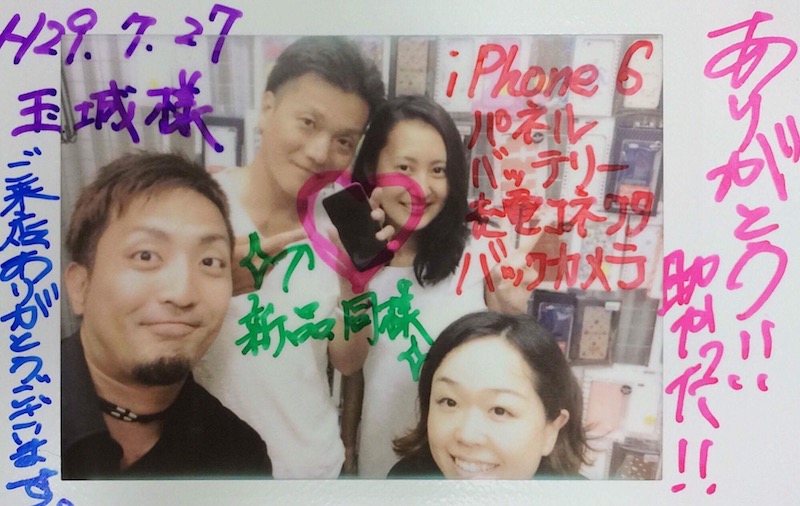 H29.7.27
玉城様
ご来店ありがとうございます。
iPhone 6
パネル
バッテリー
充電コネクタ
バックカメラ
新品同様
ありがとう!!
助かった!!